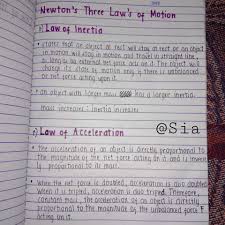 Newton's Three Law's of Motion
1) Law of Inertia
• states that an object at rest will stay at rest or an object
in motion will stay in motion and travel in straight line,
as long as no external net force act on it. The object will
change its state of motion only if there is unbalanced
or net force acting upon it.
• An object with larger mass has a larger inertia.
Mass increases: Inertia increases
@Sia
2) Law of Acceleration
• the acceleration of an object is directly proportional to
the magnitude of the net force acting on it and is inverse
ly proportional to its mass.
• When the net force is doubled, acceleration is also doubled
when it is tripled, acceleration is also tripled. Therefore,
constant mass, the acceleration of an object is directly
proportional to the magnitude of the unbalanced force F
acting on it.